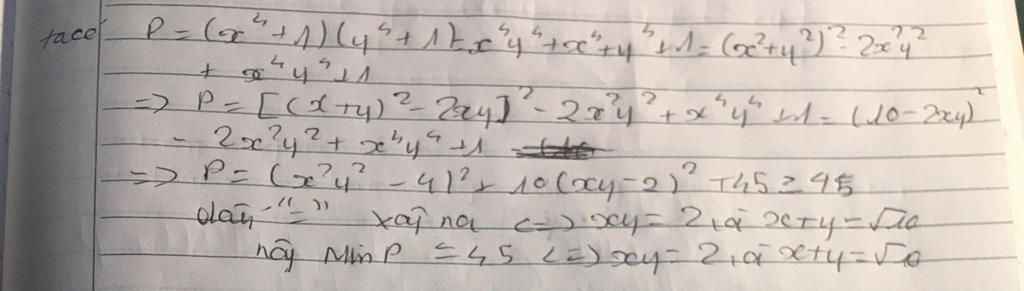 ta có P = (x⁴+1)(y⁴+1) = x⁴y⁴+x⁴+y⁴+1 = (x²+y²)² - 2x²y²
+ x⁴y⁴+1
=> P = [(x+y)² - 2xy]² - 2x²y² + x⁴y⁴ +1 = (10-2xy)²
- 2x²y² + x⁴y⁴ +1
=> P = (x²y² - 4)² + 10(xy-2)² + 45 ≥ 45
dấu "=" xảy ra <=> xy = 2 và x+y = √10
vậy Min P = 45 <=> xy = 2 và x+y = √10